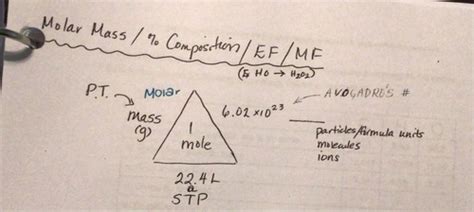 Molar Mass / % Composition / EF / MF
HO → H₂O₂)
P.T. → Molar
mass
(g)
1
mole
6.02 x 10²³
AVOGADRO'S #
particles/formula units
molecules
ions
22.4 L
@
STP